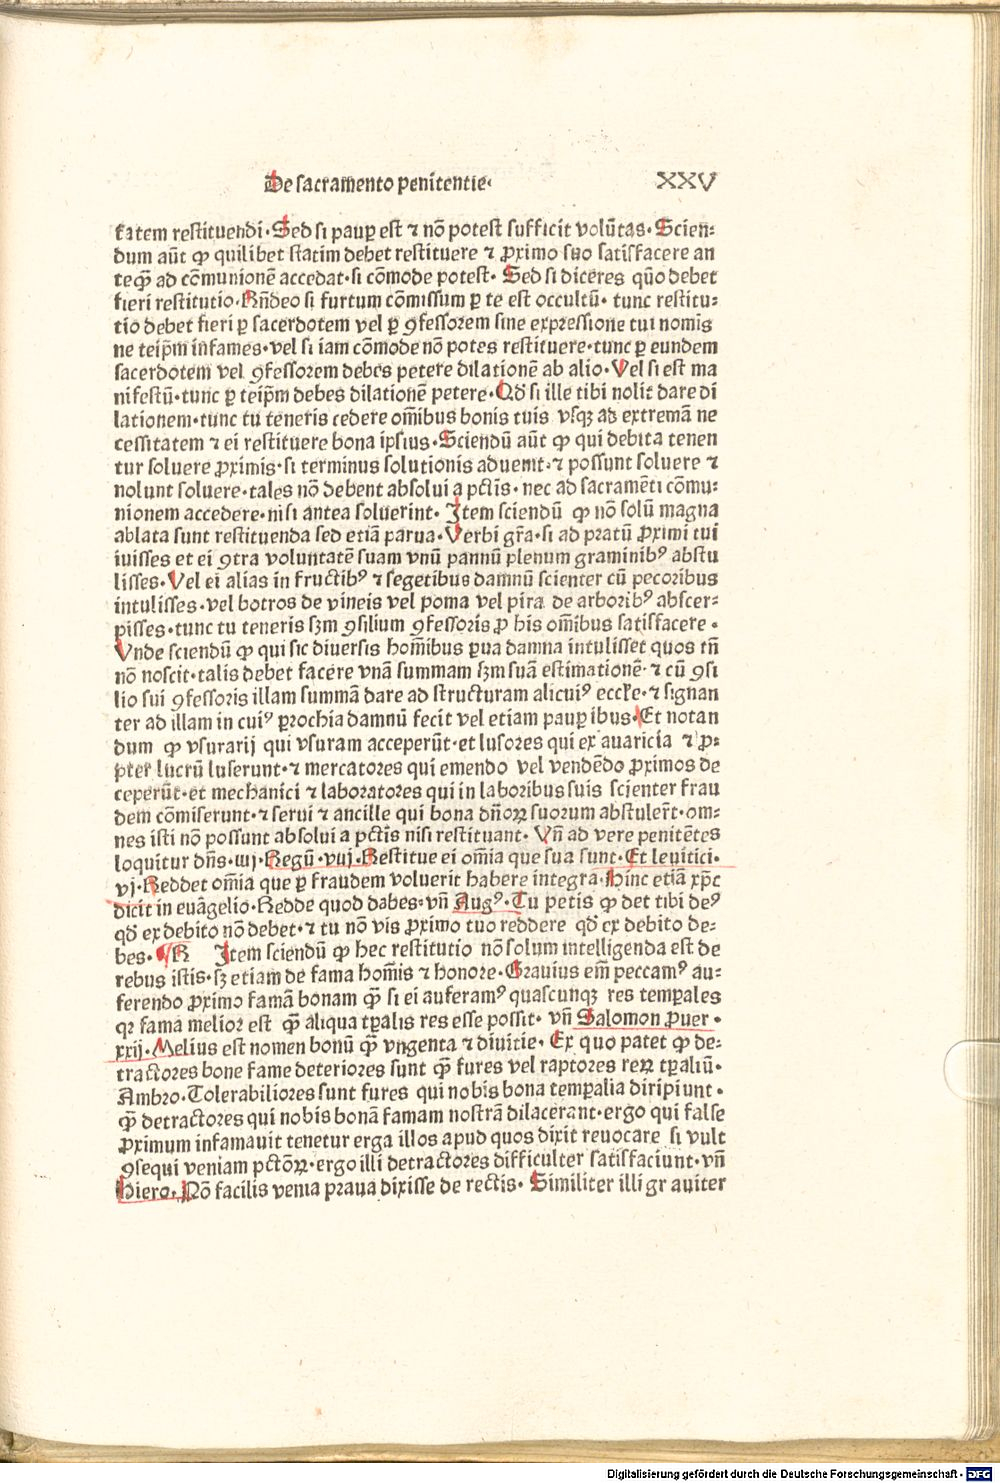 De sacramento penitentie·
XXV
tatem restituendi·Sed si paup̲ est ⁊ nō potest sufficit volūtas·Scien⸗
dum aūt ꝙ quilibet statim debet restituere ⁊ ꝓximo suo satisfacere an
teqꝫ̄ ad cōmunionē accedat·si cōmode potest·Sed si diceres quō debet
fieri restitutio·Rn̄deo si furtum cōmissum ꝑ te est occultū·tunc restitu⸗
tio debet fieri ꝑ sacerdotem vel ꝑ ꝯfessorem sine expressione tui nomīs
ne teip̄m infames·vel si iam cōmode nō potes restituere·tunc ꝑ eundem
sacerdotem vel ꝯfessorem debes petere dilationē ab alio·Vel si est ma
nifestū·tunc ꝑ teip̄m debes dilationē petere·Qd̄ si ille tibi nolit dare di
lationem·tunc tu teneris cedere om̄ibus bonis tuis vsqꝫ ad extremā ne
cessitatem ⁊ ei restituere bona ipsius·Sciendū aūt ꝙ qui debita tenen
tur soluere ꝓximis·si terminus solutionis aduenit·⁊ possunt soluere ⁊
nolunt soluere·tales nō debent absolui a pctīs·nec ad sacramēti cōmu⸗
nionem accedere·nisi antea soluerint·Item sciendū ꝙ nō solū magna
ablata sunt restituenda sed etiā parua·Verbi gr̄a·si ad pratū ꝓximi tui
iuisses et ei ꝯtra voluntatē suam vnū pannū plenum graminibꝰ abstu
lisses·Vel ei alias in fructibꝰ ⁊ segetibus damnū scienter cū pecoribus
intulisses·vel botros de vineis vel poma vel pira de arboribꝰ abscer⸗
pisses·tunc tu teneris sꝫm ꝯsilium ꝯfessoris ꝓ his om̄ibus satisfacere·
Vnde sciendū ꝙ qui sic diuersis hom̄ibus ꝑua damna intulisset quos tn̄
nō noscit·talis debet facere vnā summam sꝫm suā estimationē·⁊ cū ꝯsi
lio sui ꝯfessoris illam summā dare ad structuram alicuiꝰ eccl̄e·⁊ signan
ter ad illam in cuiꝰ ꝑrochia damnū fecit vel etiam pauꝑibus·Et notan
dum ꝙ vsurarij qui vsuram acceperūt·et lusores qui ex auaricia ⁊ ꝓ⸗
pter lucrū luserunt·⁊ mercatores qui emendo vel vendēdo ꝓximos de
ceperūt·et mechanici ⁊ laboratores qui in laboribus suis scienter frau
dem cōmiserunt·⁊ serui ⁊ ancille qui bona dn̄oꝝ suorum abstulert̄·om⸗
nes isti nō possunt absolui a pctīs nisi restituant·Vn̄ ad vere penitētes
loquitur dn̄s·iiij·Regū·viij·Restitue ei om̄ia que sua sunt·Et leuitici·
vj·Reddet om̄ia que ꝑ fraudem voluerit habere integra·Hinc etiā xp̄c
dicit in euāgelio·Redde quod dabes·vn̄ Augꝰ·Tu petis ꝙ det tibi deꝰ
qd̄ ex debito nō debet·⁊ tu nō vis ꝓximo tuo reddere qd̄ ex debito de⸗
bes· Item sciendū ꝙ hec restitutio nō solum intelligenda est de
rebus istis·sꝫ etiam de fama hom̄is ⁊ honore·Grauius em̄ peccamꝰ au⸗
ferendo ꝓximo famā bonam qꝫ̄ si ei auferamꝰ quascunqꝫ res temꝑales
qꝛ fama melior est qꝫ̄ aliqua tꝑalis res esse possit·vn̄ Salomon ꝓuer·
xxij·Melius est nomen bonū qꝫ̄ vngenta ⁊ diuitie·Ex quo patet ꝙ de⸗
tractores bone fame deteriores sunt qꝫ̄ fures vel raptores reꝝ tꝑaliū·
Ambro·Tolerabiliores sunt fures qui nobis bona temꝑalia diripiunt·
qꝫ̄ detractores qui nobis bonā famam nostrā dilacerant·ergo qui false
ꝓximum infamauit tenetur erga illos apud quos dixit reuocare si vult
ꝯsequi veniam pctōꝝ·ergo illi detractores difficulter satisfaciunt·vn̄
Hiero·Nō facilis venia praua dixisse de rectis·Similiter illi grauiter
Digitalisierung gefördert durch die Deutsche Forschungsgemeinschaft - DFG